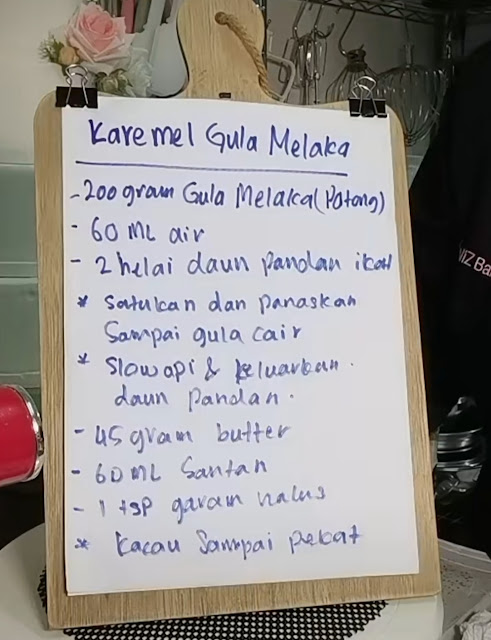 Karemel Gula Melaka
- 200 gram Gula Melaka (Potong)
- 60 ML air
- 2 helai daun pandan ikat
* Satukan dan panaskan
Sampai gula cair
* Slow api & keluarkan.
daun pandan.
- 45 gram butter
- 60 ML Santan
- 1 tsp garam halus
* kacau Sampai pekat